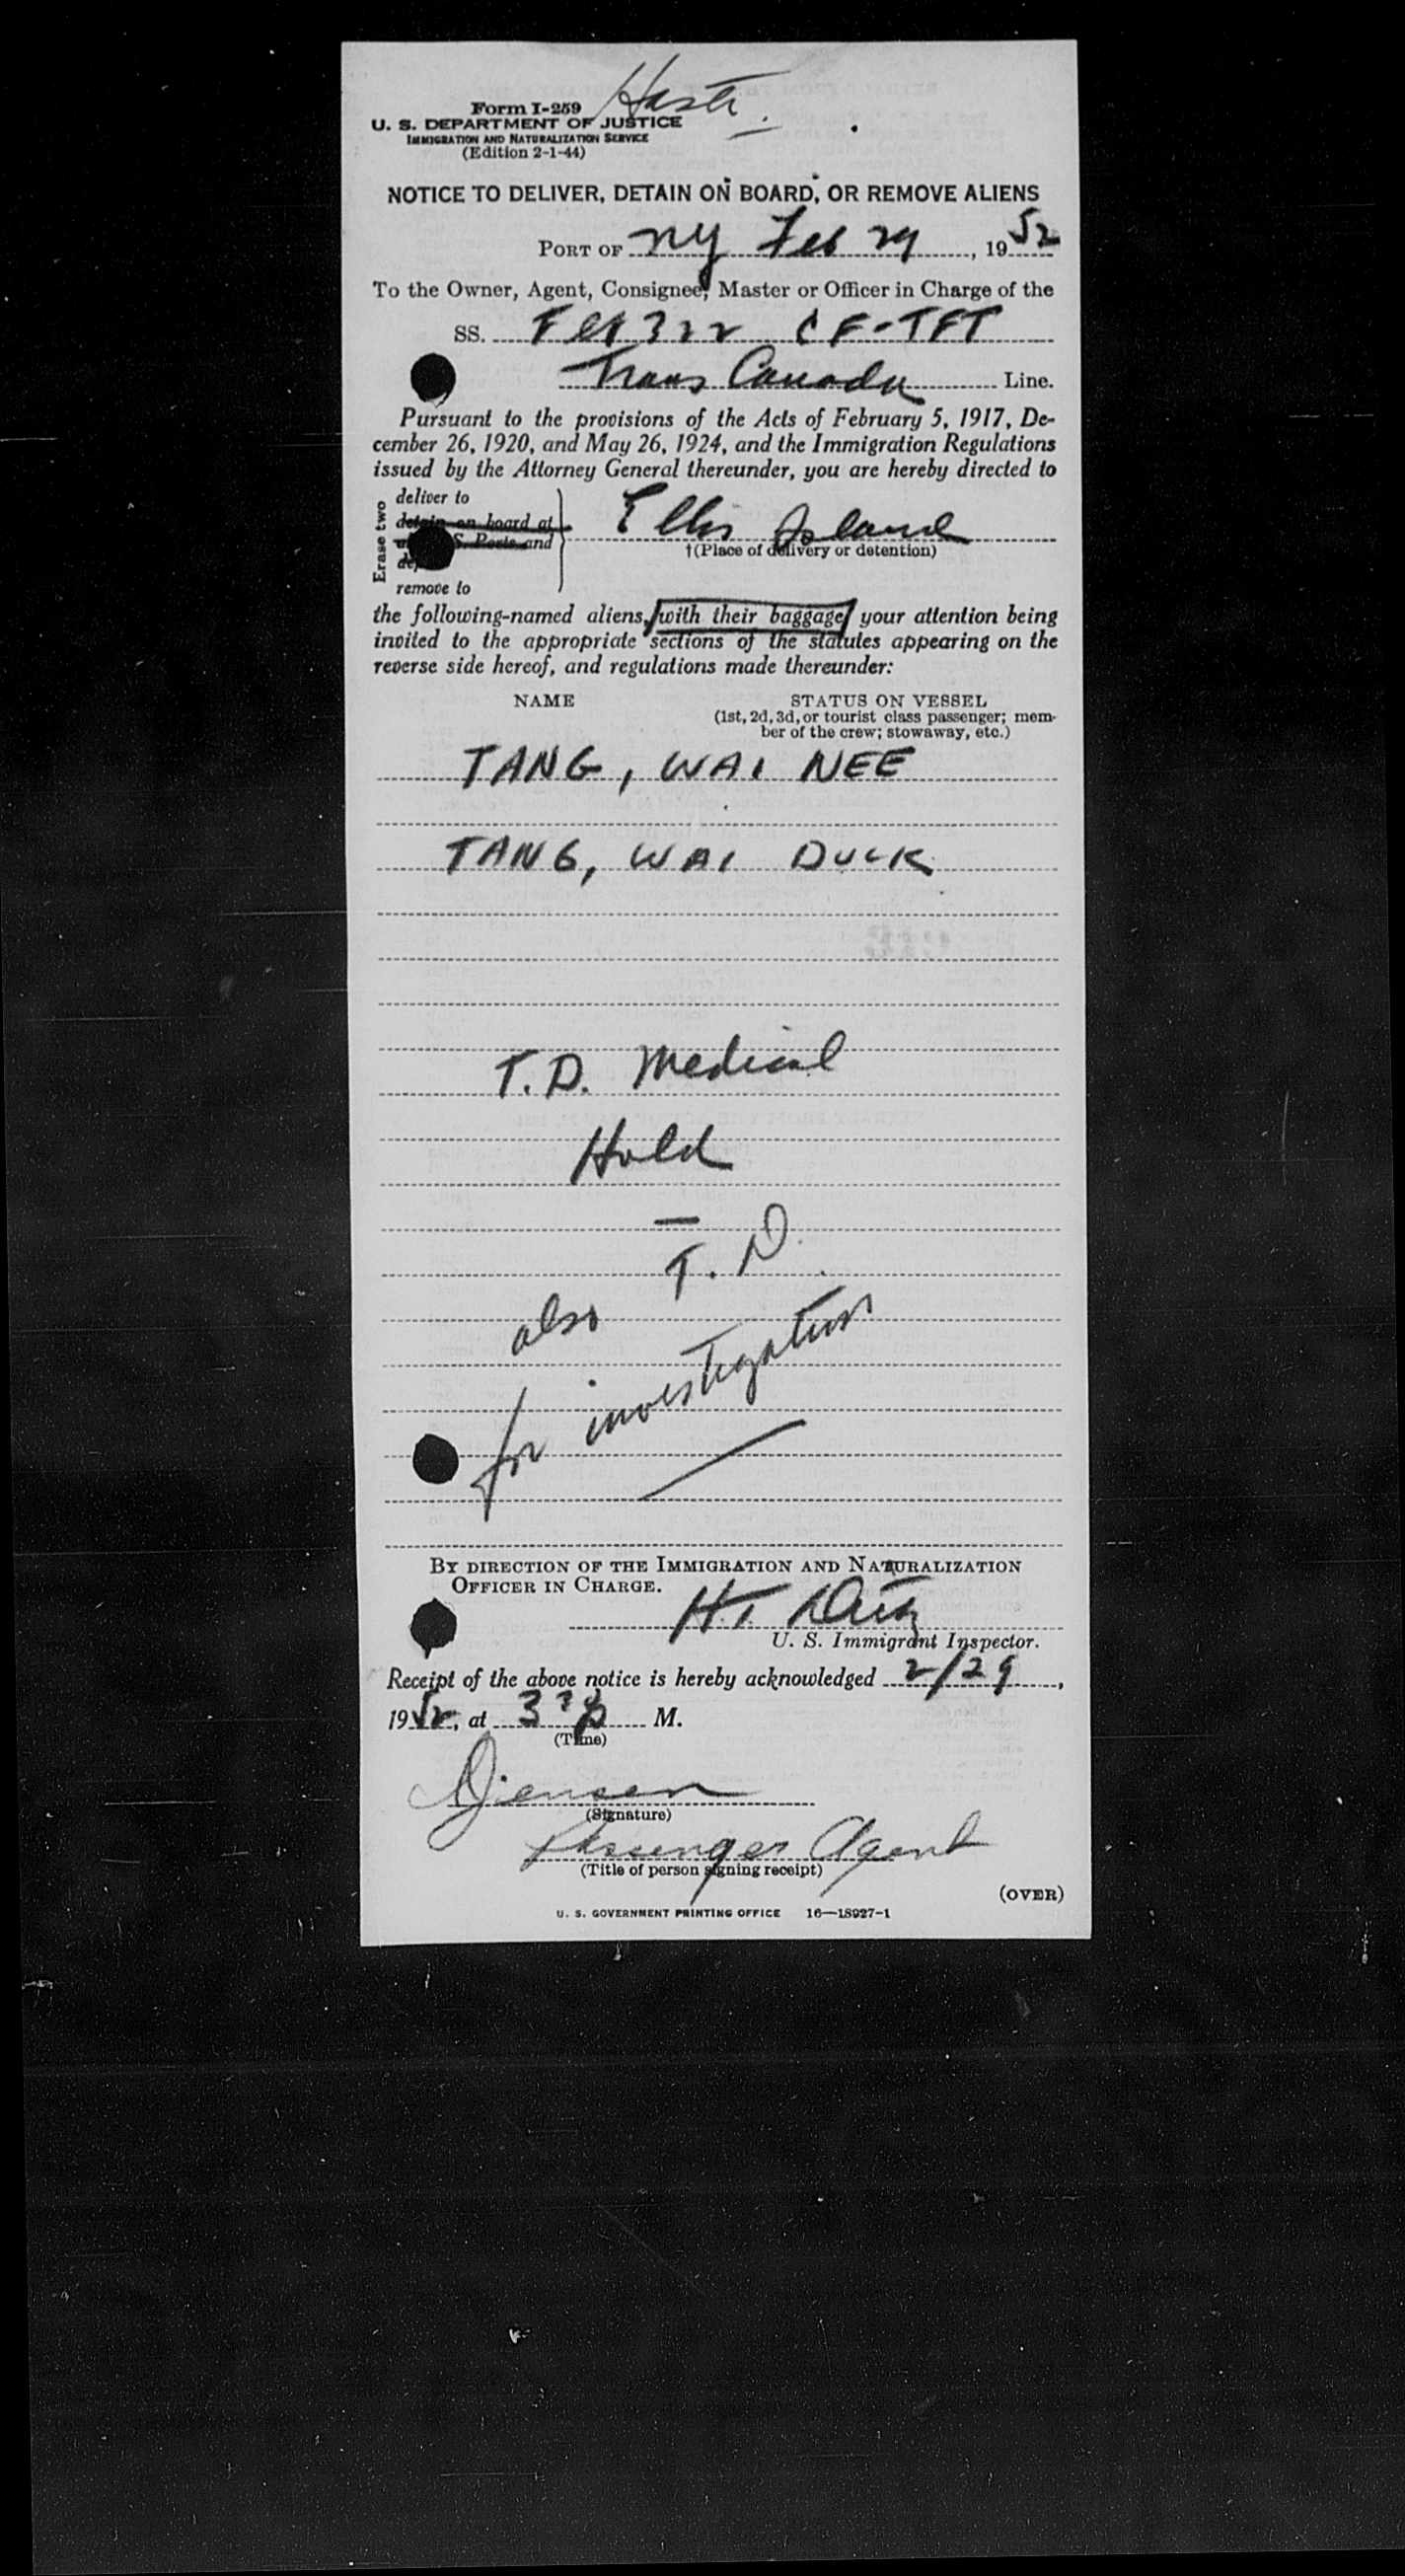 Form I-259
U. S. DEPARTMENT OF JUSTICE
IMMIGRATION AND NATURALIZATION SERVICE
(Edition 2-1-44)
NOTICE TO DELIVER, DETAIN ON BOARD, OR REMOVE ALIENS
PORT OF NY Feb 29, 1952
To the Owner, Agent, Consignee, Master or Officer in Charge of the
SS. 322 CF-TFT
Trans Canada Line.
Pursuant to the provisions of the Acts of February 5, 1917, De-
cember 26, 1920, and May 26, 1924, and the Immigration Regulations
issued by the Attorney General thereunder, you are hereby directed to
Erase two
deliver to
detain on board at
S. Ports and
remove to
Ellis Island
†(Place of delivery or detention)
the following-named aliens, with their baggage, your attention being
invited to the appropriate sections of the statutes appearing on the
reverse side hereof, and regulations made thereunder:
NAME STATUS ON VESSEL
(1st, 2d, 3d, or tourist class passenger; mem-
ber of the crew; stowaway, etc.)
TANG, WAI NEE
TANG, WAI DUCK
T.D. Medical
Hold
T.D.
also
for investigation
BY DIRECTION OF THE IMMIGRATION AND NATURALIZATION
OFFICER IN CHARGE.
U. S. Immigrant Inspector.
Receipt of the above notice is hereby acknowledged 2/29,
1952, at M.
(Time)
(Signature)
Passenger Agent
(Title of person signing receipt)
(OVER)
U. S. GOVERNMENT PRINTING OFFICE 16—18927-1